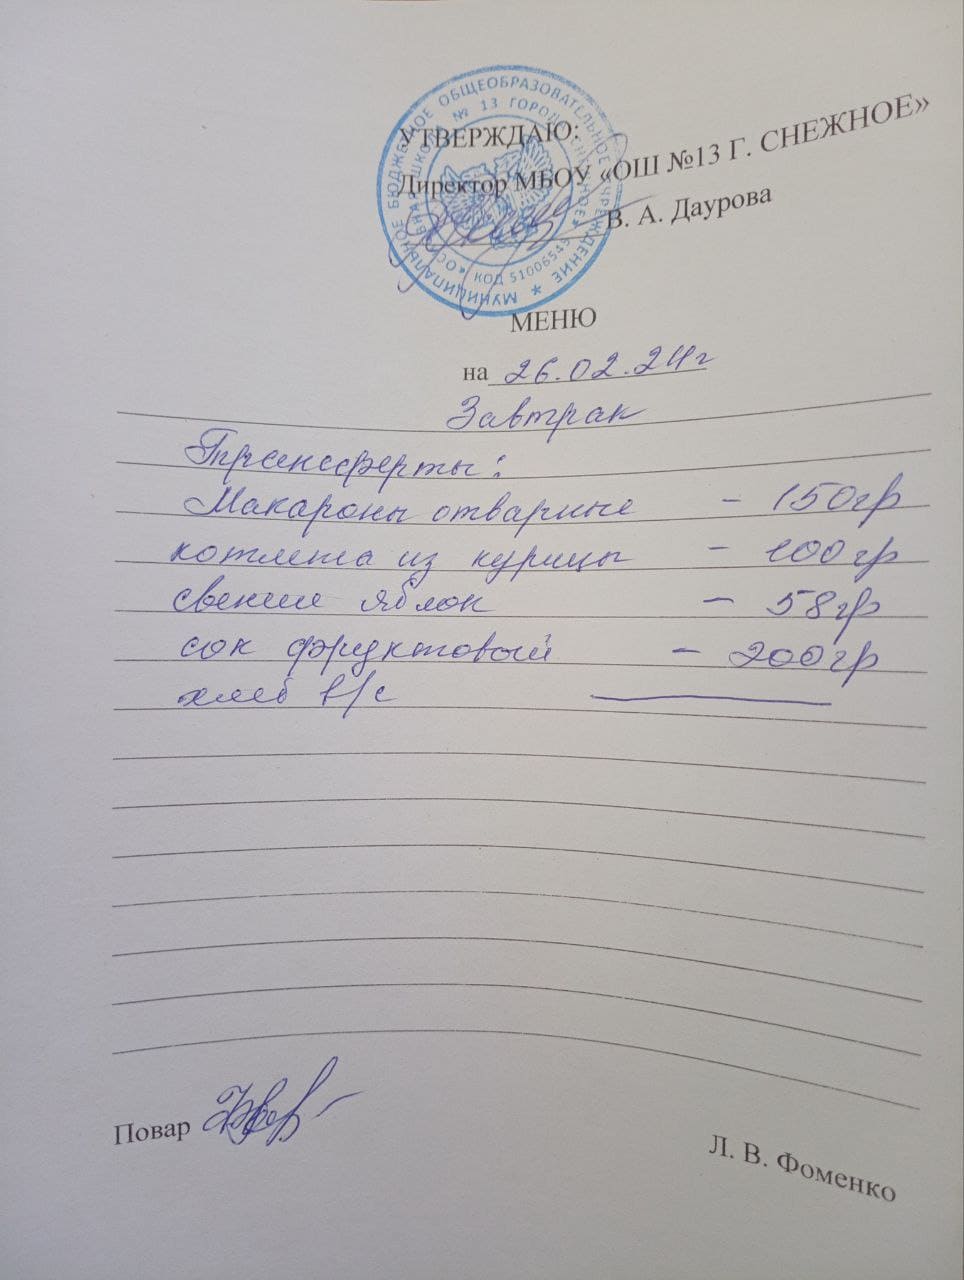 МУНИЦИПАЛЬНОЕ БЮДЖЕТНОЕ ОБЩЕОБРАЗОВАТЕЛЬНОЕ УЧРЕЖДЕНИЕ *
ШКОЛА № 13 ГОРОДА СНЕЖНОЕ»
КОД 51006549
УТВЕРЖДАЮ:
Директор МБОУ «ОШ №13 Г. СНЕЖНОЕ»
В. А. Даурова
МЕНЮ
на 26.02.24г
Завтрак
Трансферты:
Макароны отварные – 150гр
котлета из курицы – 100гр
свежие яблок – 58гр
сок фруктовый – 200гр
хлеб в/с
Повар
Л. В. Фоменко